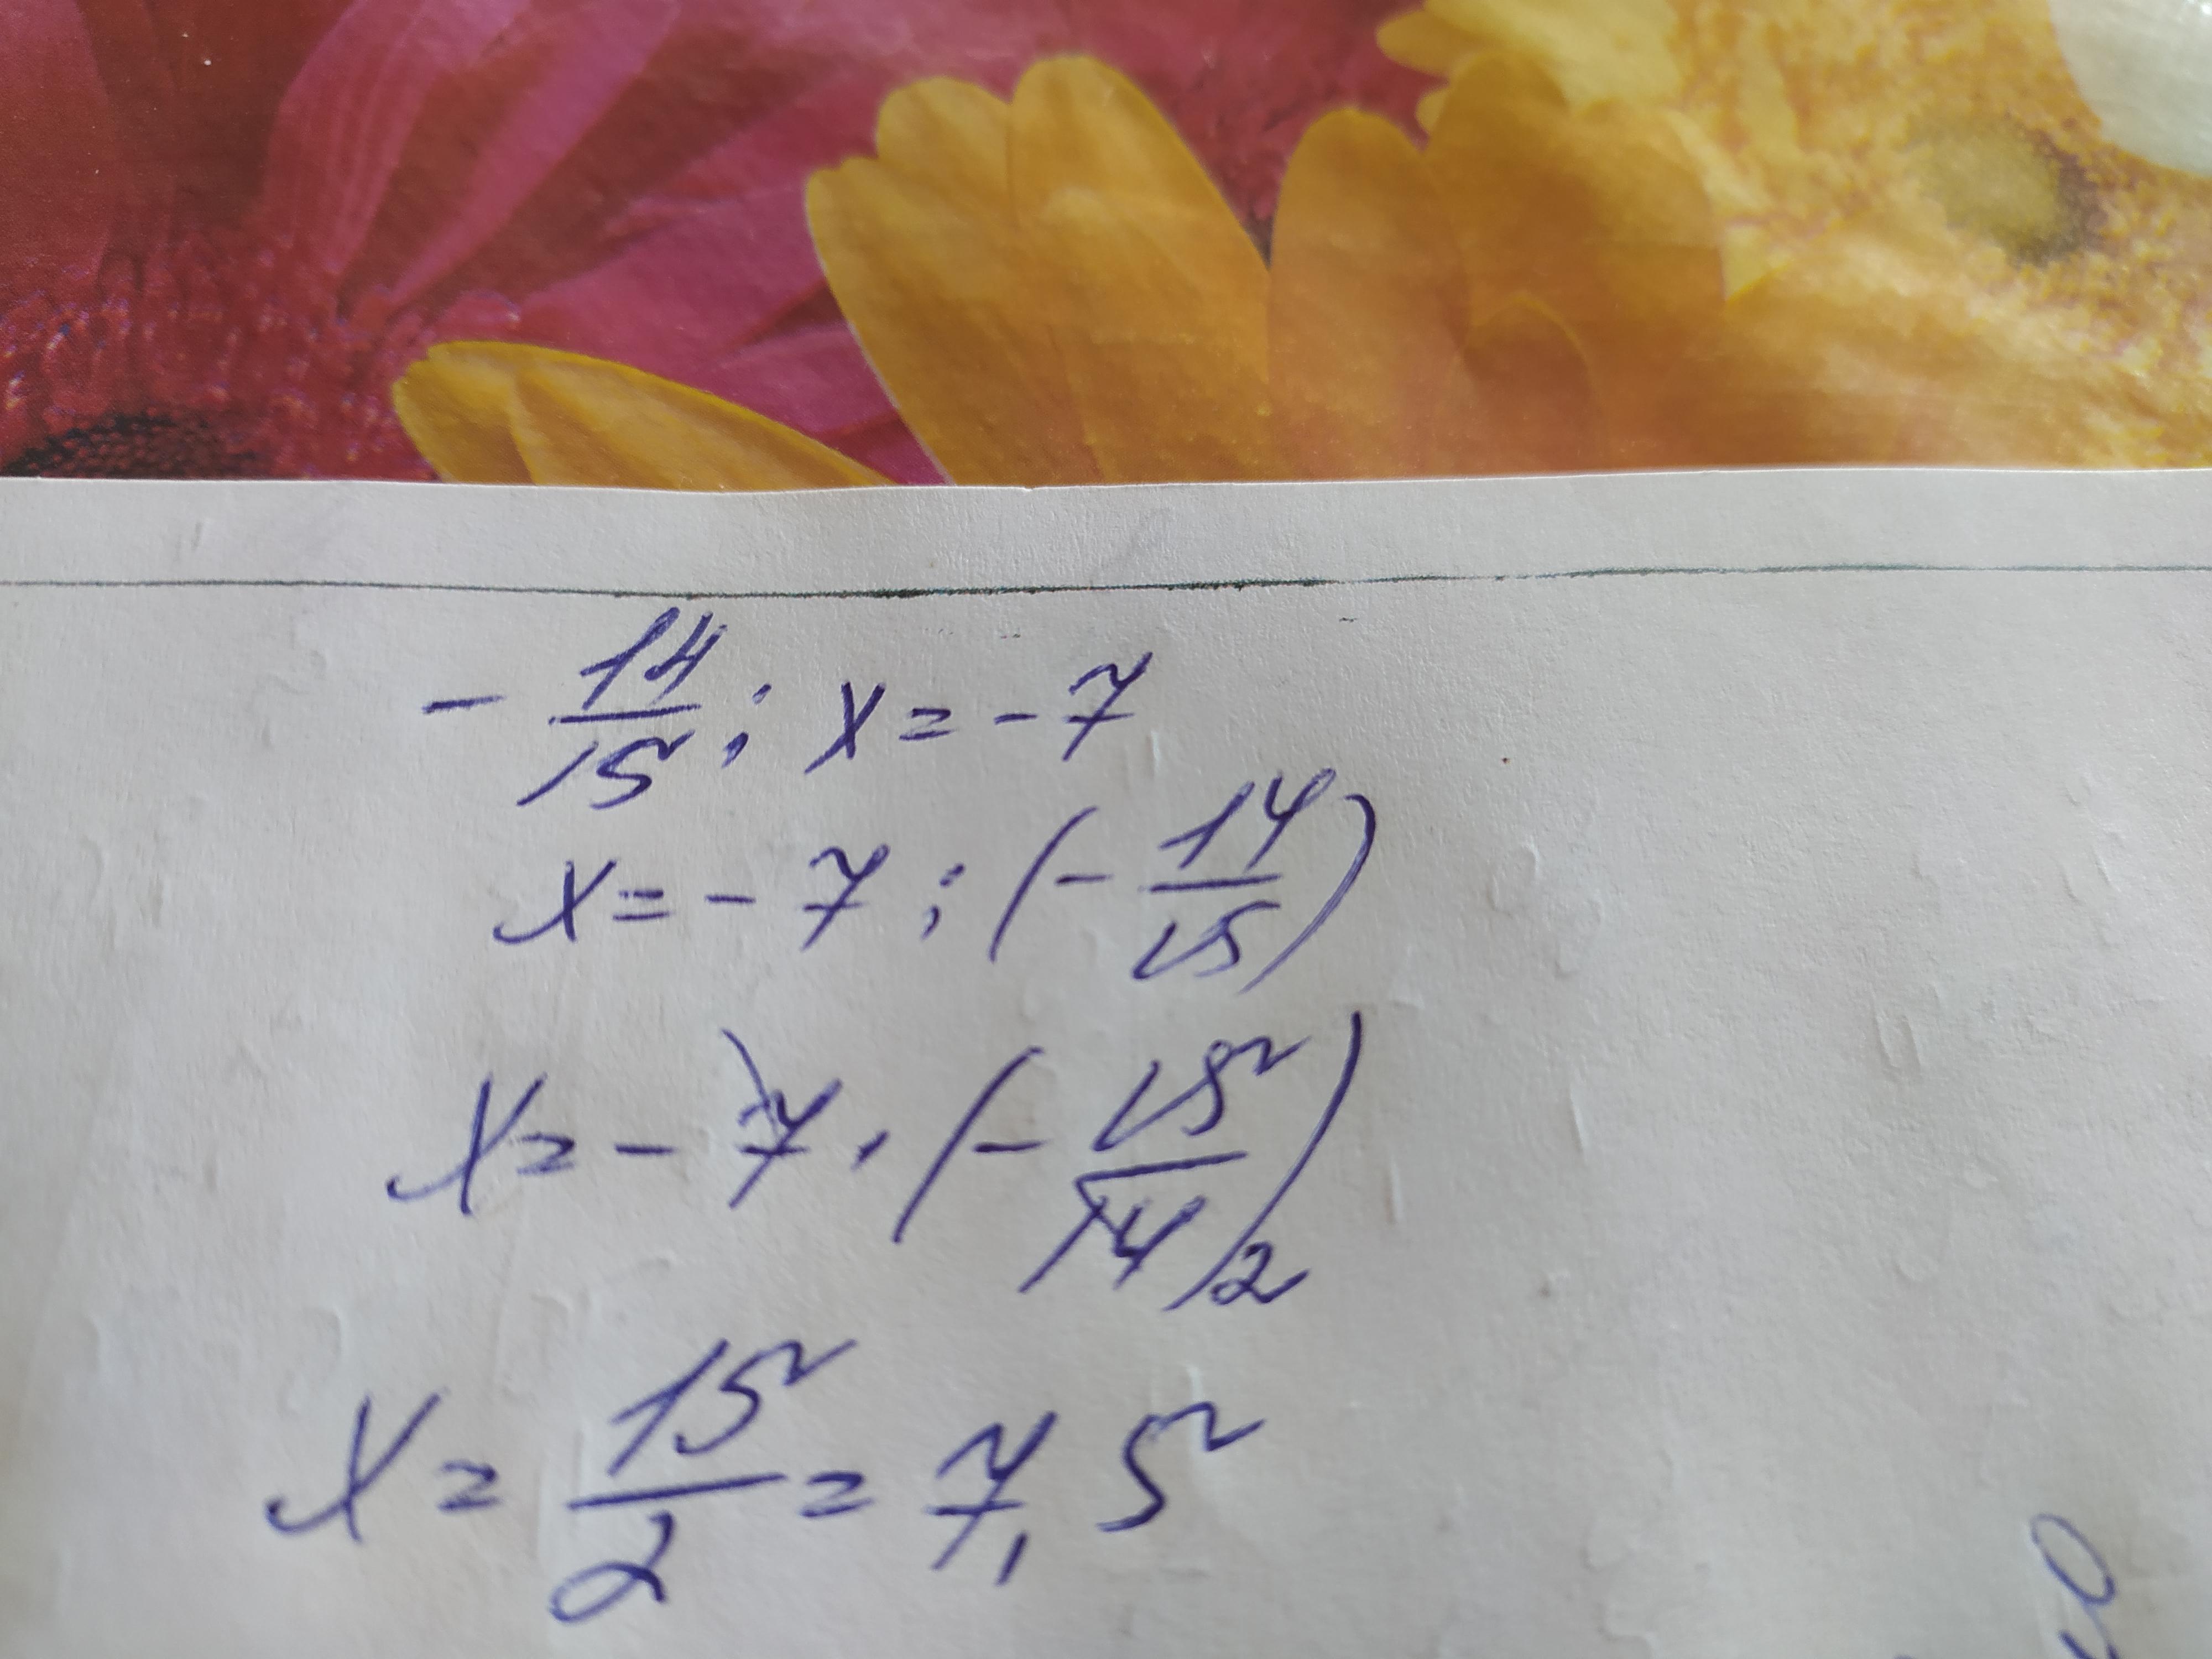 - 14/15 : x = - 7
x = - 7 : (- 14/15)
x = - 7 · (- 15/14) 2
x = 15/2 = 7,5